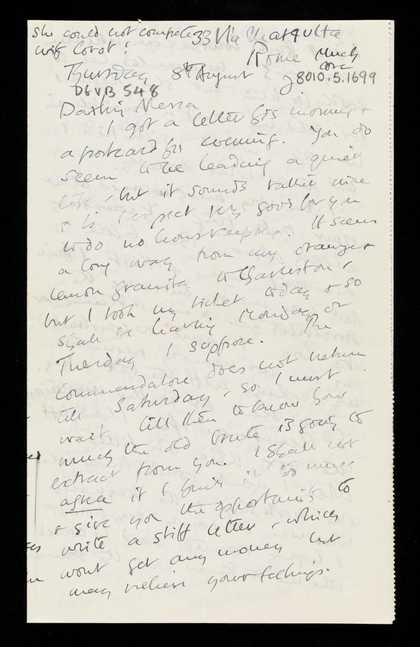 She could not compete 33 Via Margutta
with Corot! Rome Much
love
Thursday 8th August 8010.5.1699
D6VB 548
Darling Nessa
I got a letter this morning &
a postcard this evening. You do
seem to be leading a quiet
life, but it sounds rather nice
& is I expect very good for you
to do no housekeeping. It seems
a long way from my orange &
lemon granita to Charleston &
but I took my ticket today & so
shall be leaving Monday or
Tuesday I suppose. The
Commendatore does not return
till Saturday, so I must
wait till then to know how
much the old brute is going to
extract from you. I shall not
agree it I think
& give you the opportunity to
write a stiff letter, which
wont get any money but
may relieve your feelings.